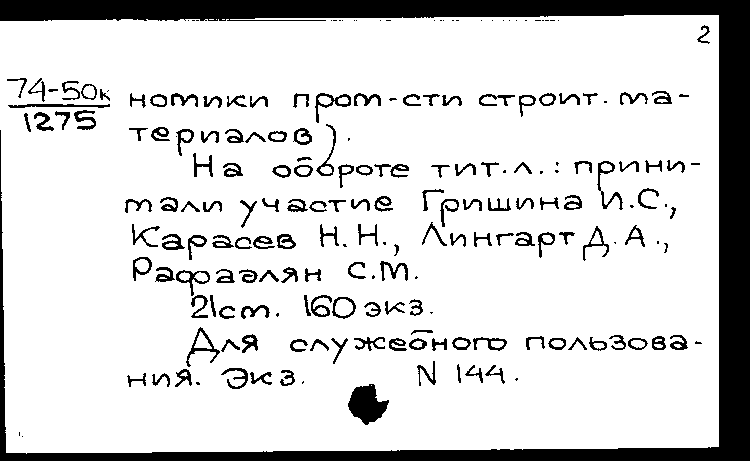 2
74-50к
1275
номики пром-сти строит. ма-
териалов).
На обороте тит.л.: прини-
мали участие Гришина И.С.,
Карасев Н.Н., Лингарт Д.А.,
Рафаэлян С.М.
21см. 160 экз.
Для служебного пользова-
ния. Экз. N 144.